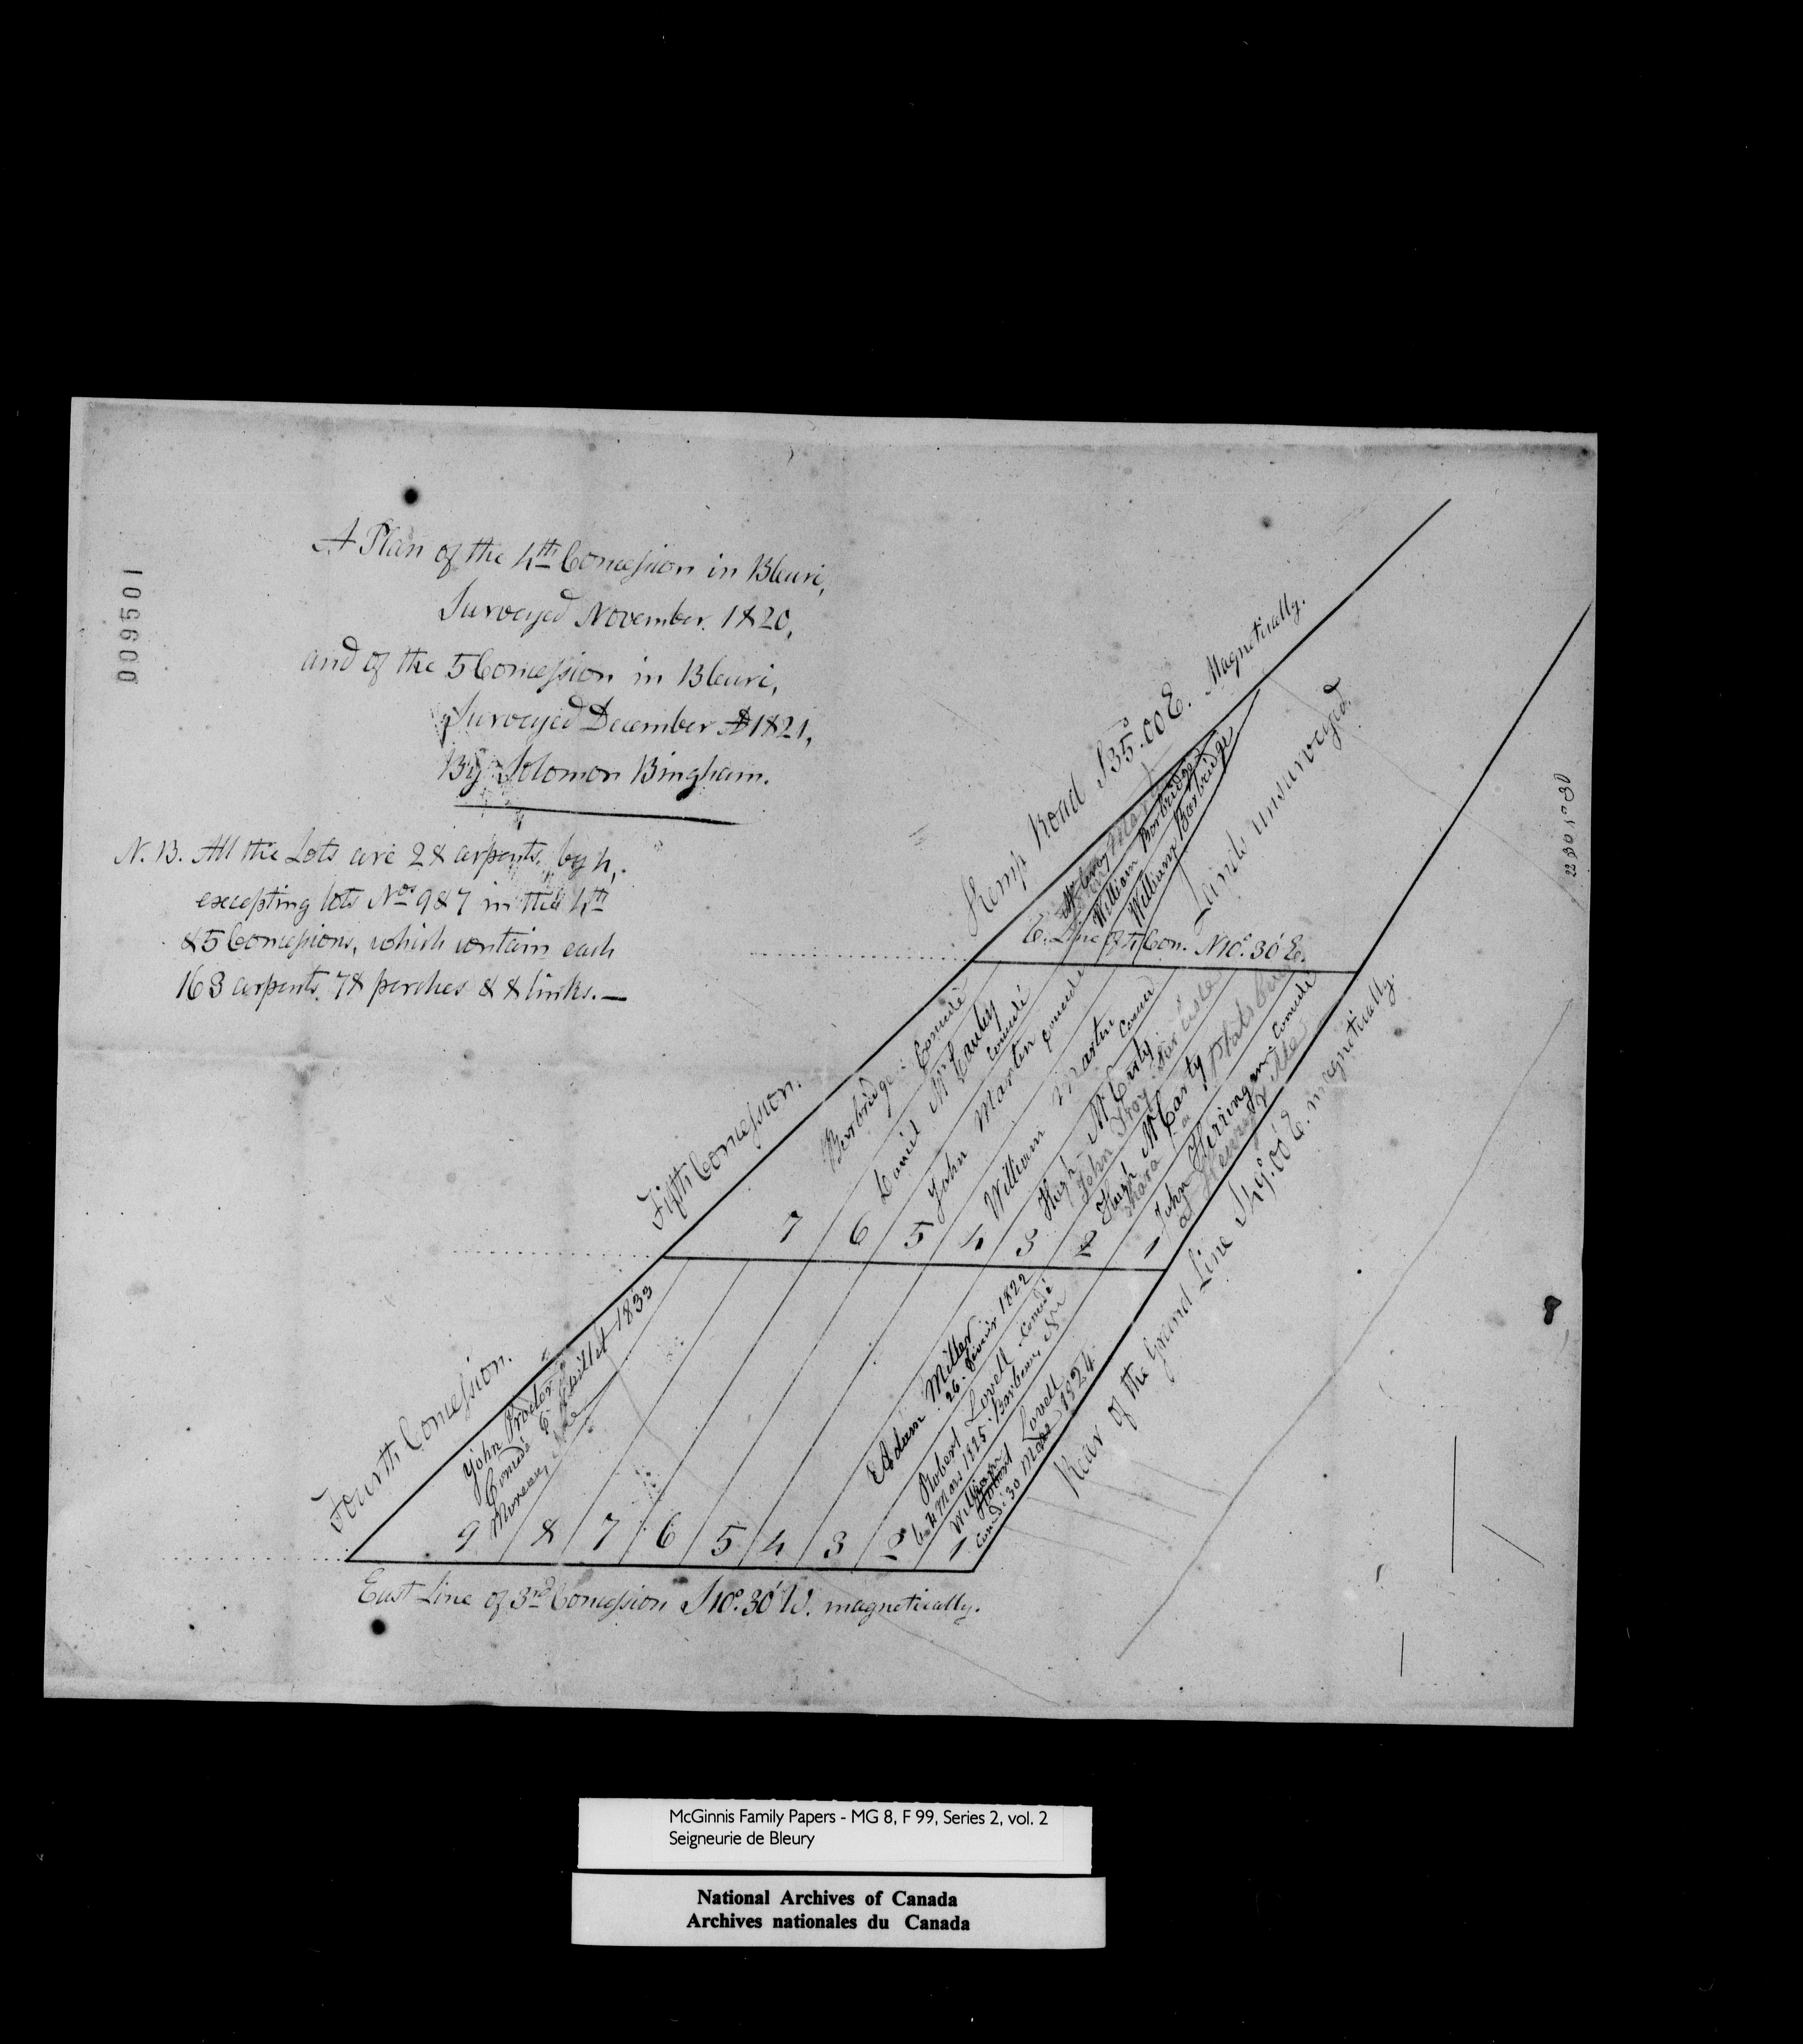 A Plan of the 4th Concession in Bleuri,
Surveyed November. 1820,
and of the 5 Concession in Bleuri,
Surveyed December 1821,
By Solomon Bingham.
N. B. All the Lots are 28 arpents, by 4,
excepting lots Nos 9 & 7 in the 4th
& 5 Concessions, which contain each
163 arpents. 78 perches & 8 links.—
009501
Kemp Road S35°.00 E. Magnetically.
William Borbridge
William Borbridge
Lands unsurveyed.
E. Line of 5 Con. N10°.30' E.
Fifth Concession.
7 Borbridge Concedé
6 Daniel McCauley Concedé
5 John Martin Concedé
4 William Martin
3 Hugh McCarty
John Troy
2 Hugh McCarty
1 John Herringem. Concedé
Henryville
Rear of the Grand Line S49°.00' E. magnetically.
Fourth Concession.
John Proctor
Concdé 6 Juillet 1833
9
8
7
6
5
4
3 Adam Miller
26. février 1822
2 Robert Lovell Concdé
Mars 1825
1 William Lovell
30 1824
East Line of 3rd Concession S10°.30' W. magnetically.
McGinnis Family Papers - MG 8, F 99, Series 2, vol. 2
Seigneurie de Bleury
National Archives of Canada
Archives nationales du Canada